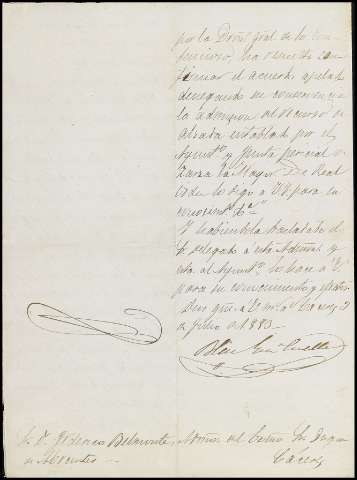 por la Dirón gral de lo Con-
tencioso, ha resuelto con-
firmar el acuerdo apelado
denegando en consecuencia
la admision del recurso de
alzada entablado por el
Ayuntº y Junta pericial de
Zarza la Mayor. De Real
orden lo digo á VS para su
conocimtº &ª"
Y habiendola trasladado el
Sr Delegado á esta Admon y
esta al Ayuntº, lo hace á V.
para su conocimiento y efectos
Dios gue á V. m. a.
de Junio de 1893.
Sr. Dn. Federico Belmonte, Admor del Excmo Sr Duque
de Abrantes. Cáceres